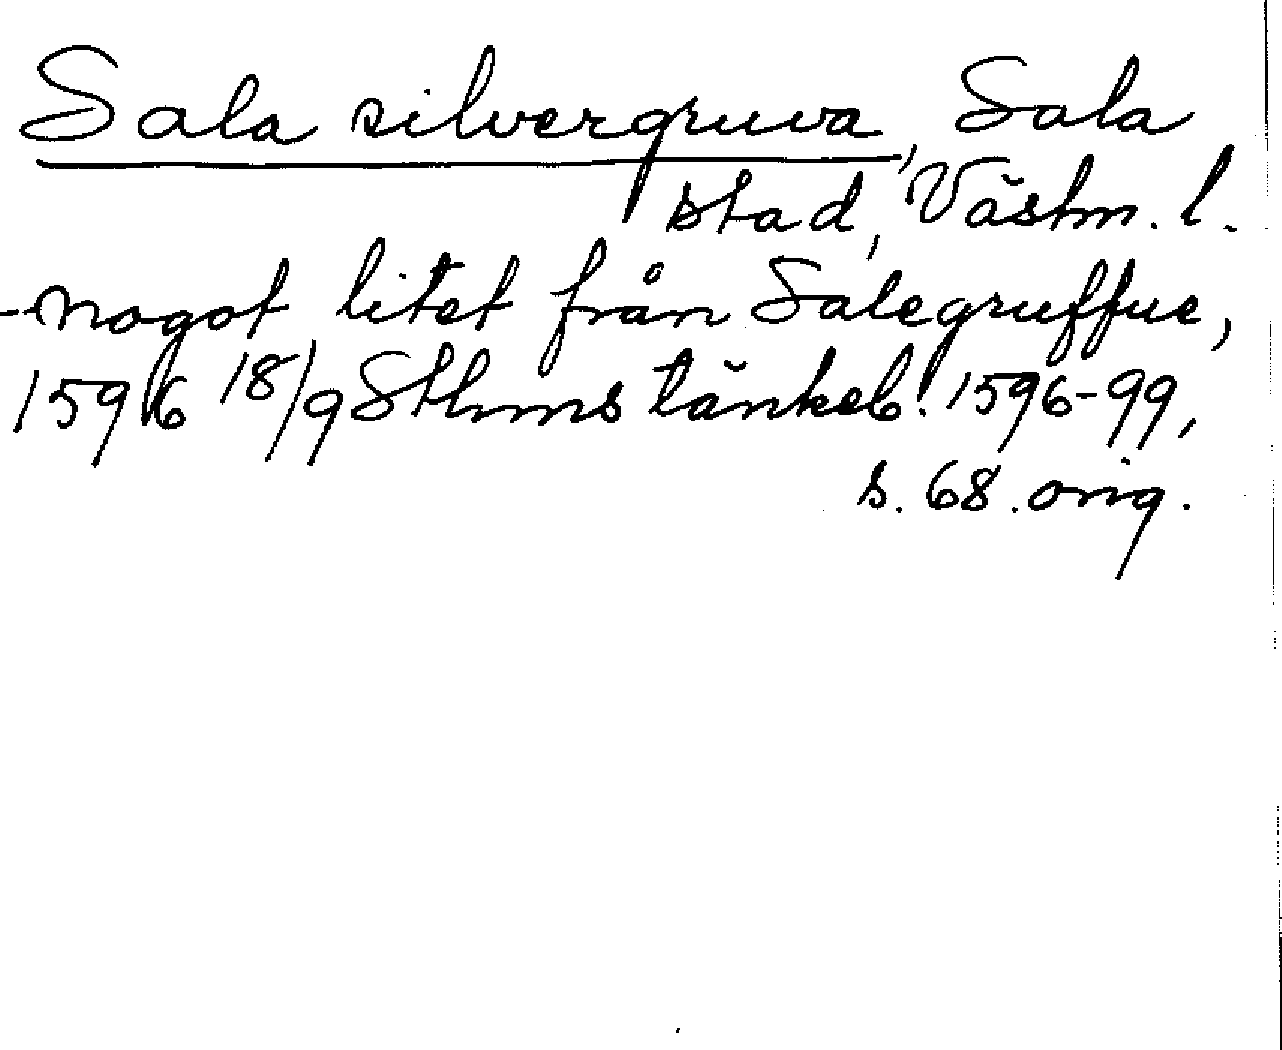 Sala silvergruva, Sala
stad, Västm. l.
- nogot litet från Salegruffue,
1596 18/9 Sthms tänkeb. 1596-99,
s. 68. orig.